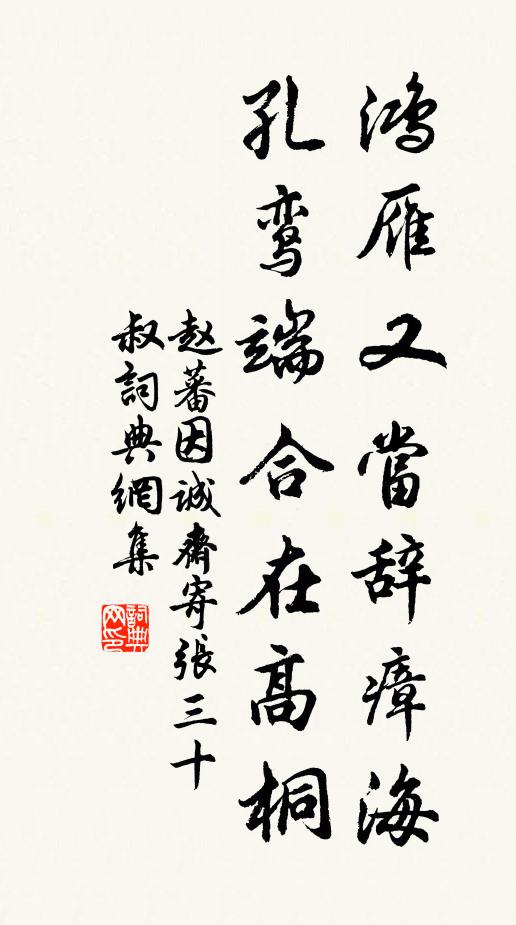 鸿雁又當辞瘴海
孔鸾端合在高桐
赵蕃因诚齋寄張三十
叔詞典網集
詞典网印